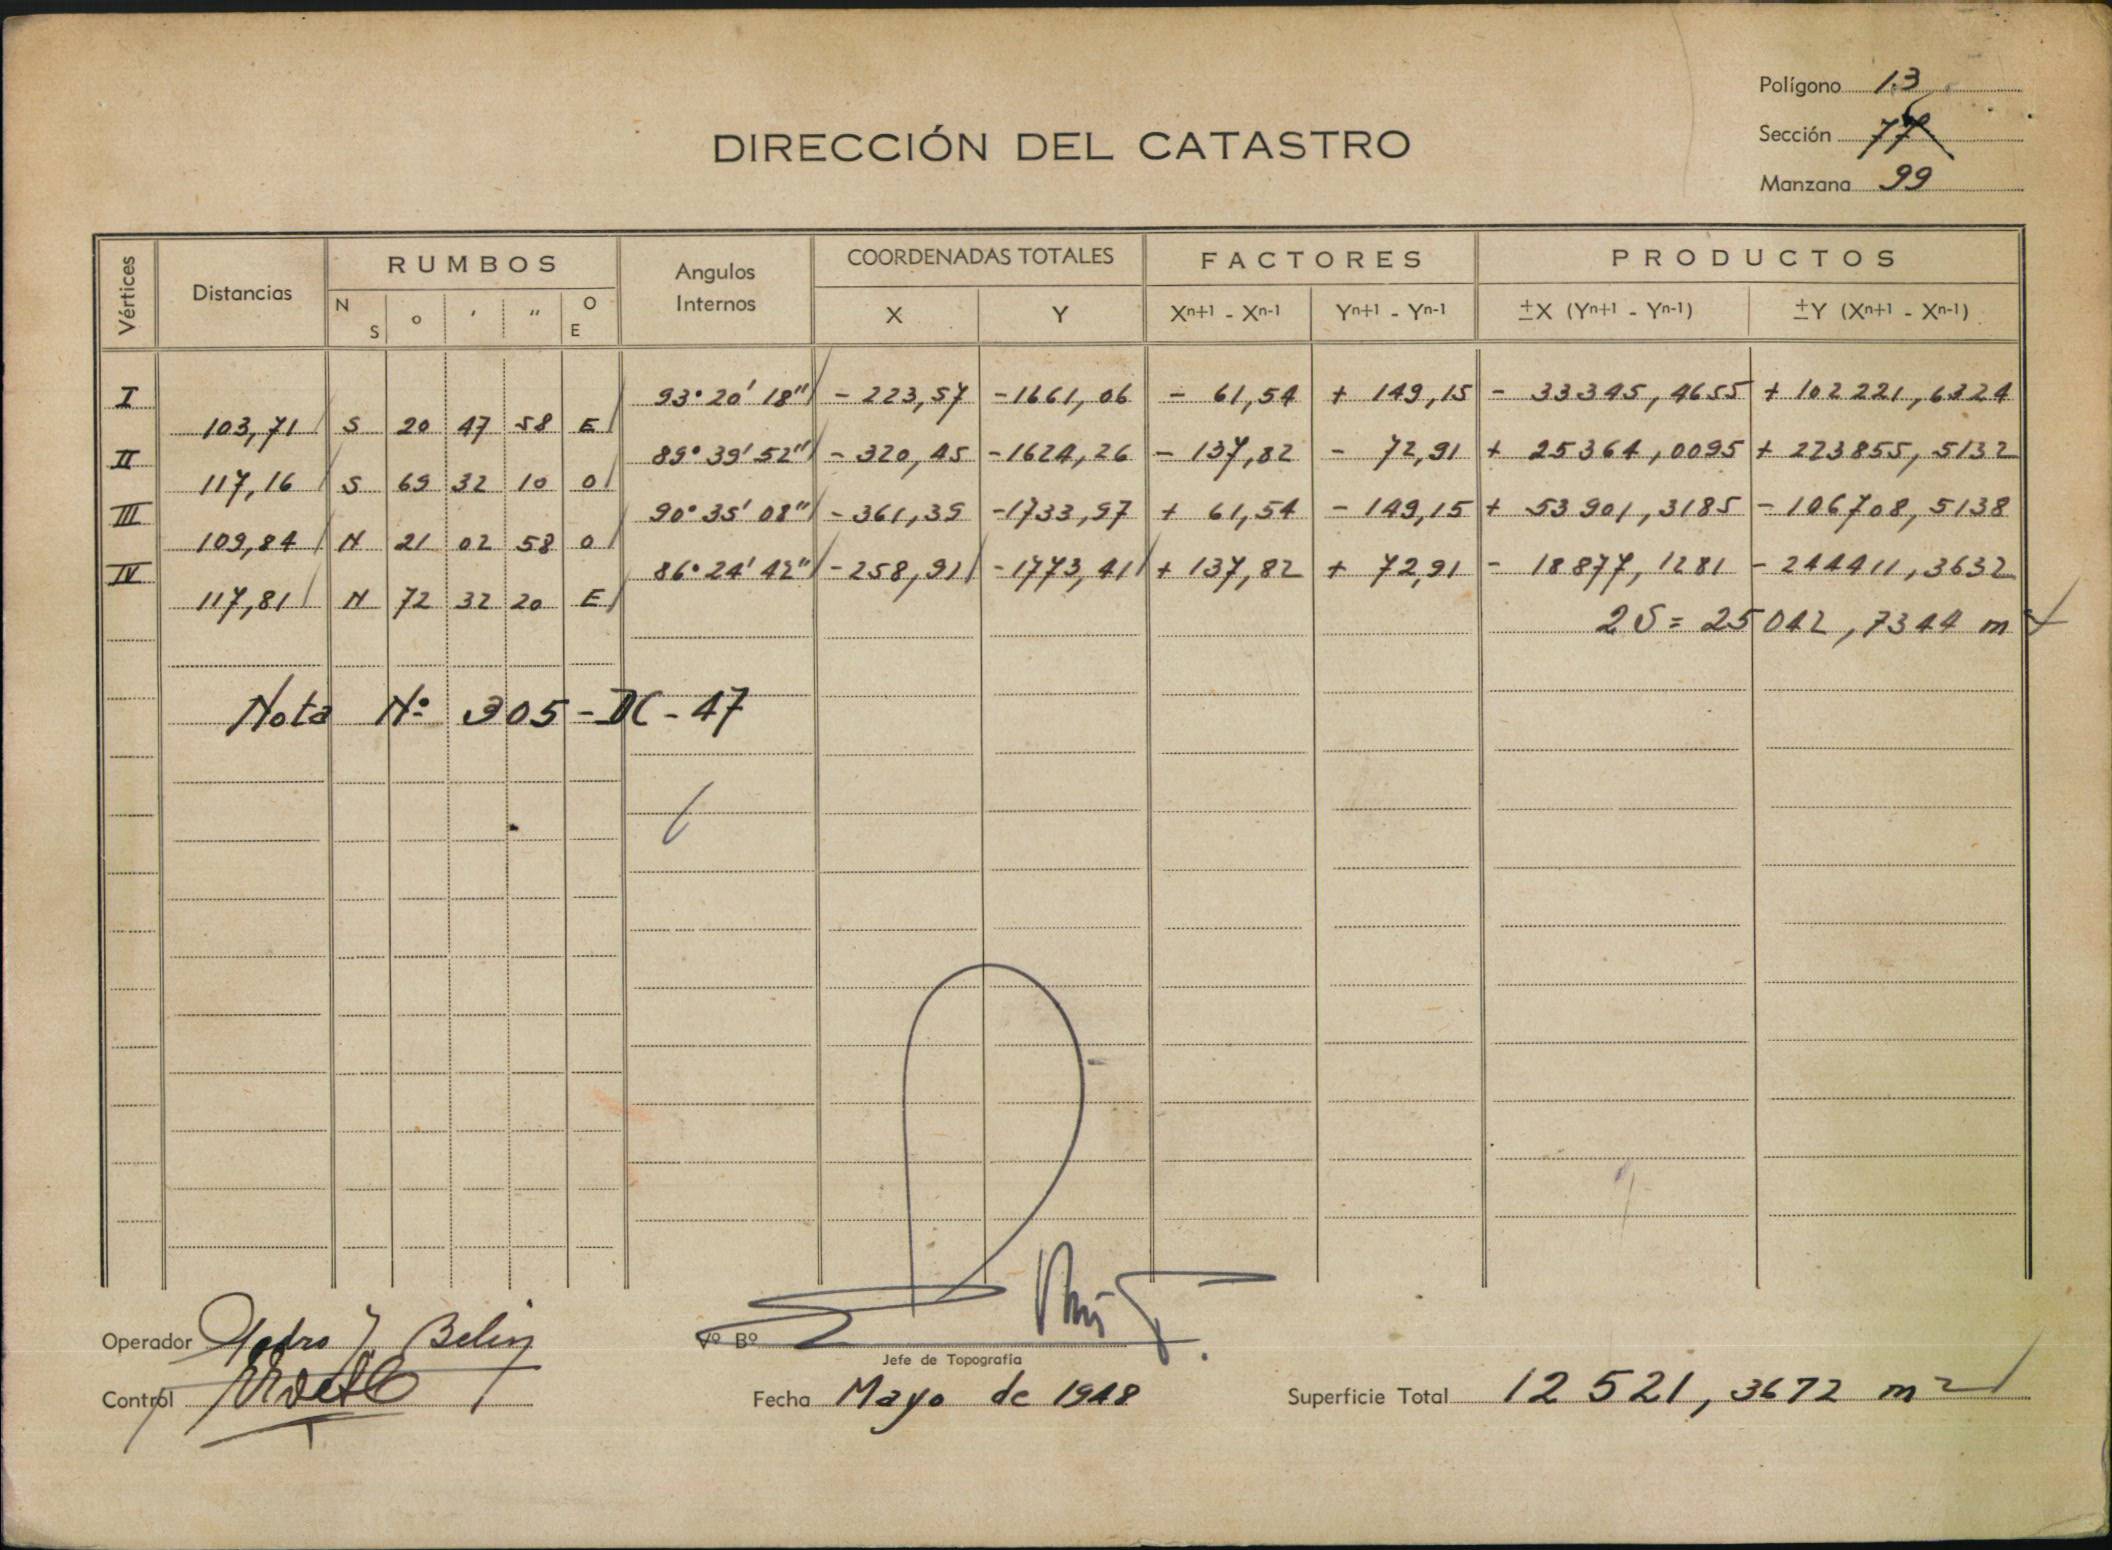 Polígono 13
DIRECCIÓN DEL CATASTRO
Sección
Manzana 99
Vértices Distancias RUMBOS Angulos Internos COORDENADAS TOTALES FACTORES PRODUCTOS
N S o ' " O E X Y Xn+1 - Xn-1 Yn+1 - Yn-1 ±X (Yn+1 - Yn-1) ±Y (Xn+1 - Xn-1)
I 93° 20' 18" - 223,57 -1661,06 - 61,54 + 149,15 - 33345,4655 + 102221,6324
103,71 S 20 47 58 E
II 89° 39' 52" - 320,45 -1624,26 - 137,82 - 72,91 + 25364,0095 + 223855,5132
117,16 S 69 32 10 O
III 90° 35' 08" - 361,39 -1733,97 + 61,54 - 149,15 + 53901,3185 - 106708,5138
109,84 N 21 02 58 O
IV 86° 24' 42" - 258,91 -1773,41 + 137,82 + 72,91 - 18877,1281 - 244411,3632
117,81 N 72 32 20 E
2S = 25042,7344 m
Nota Nº 305-DC-47
Operador Pedro J. Belin
Vº Bº
Jefe de Topografía
Control
Fecha Mayo de 1948
Superficie Total 12521,3672 m2